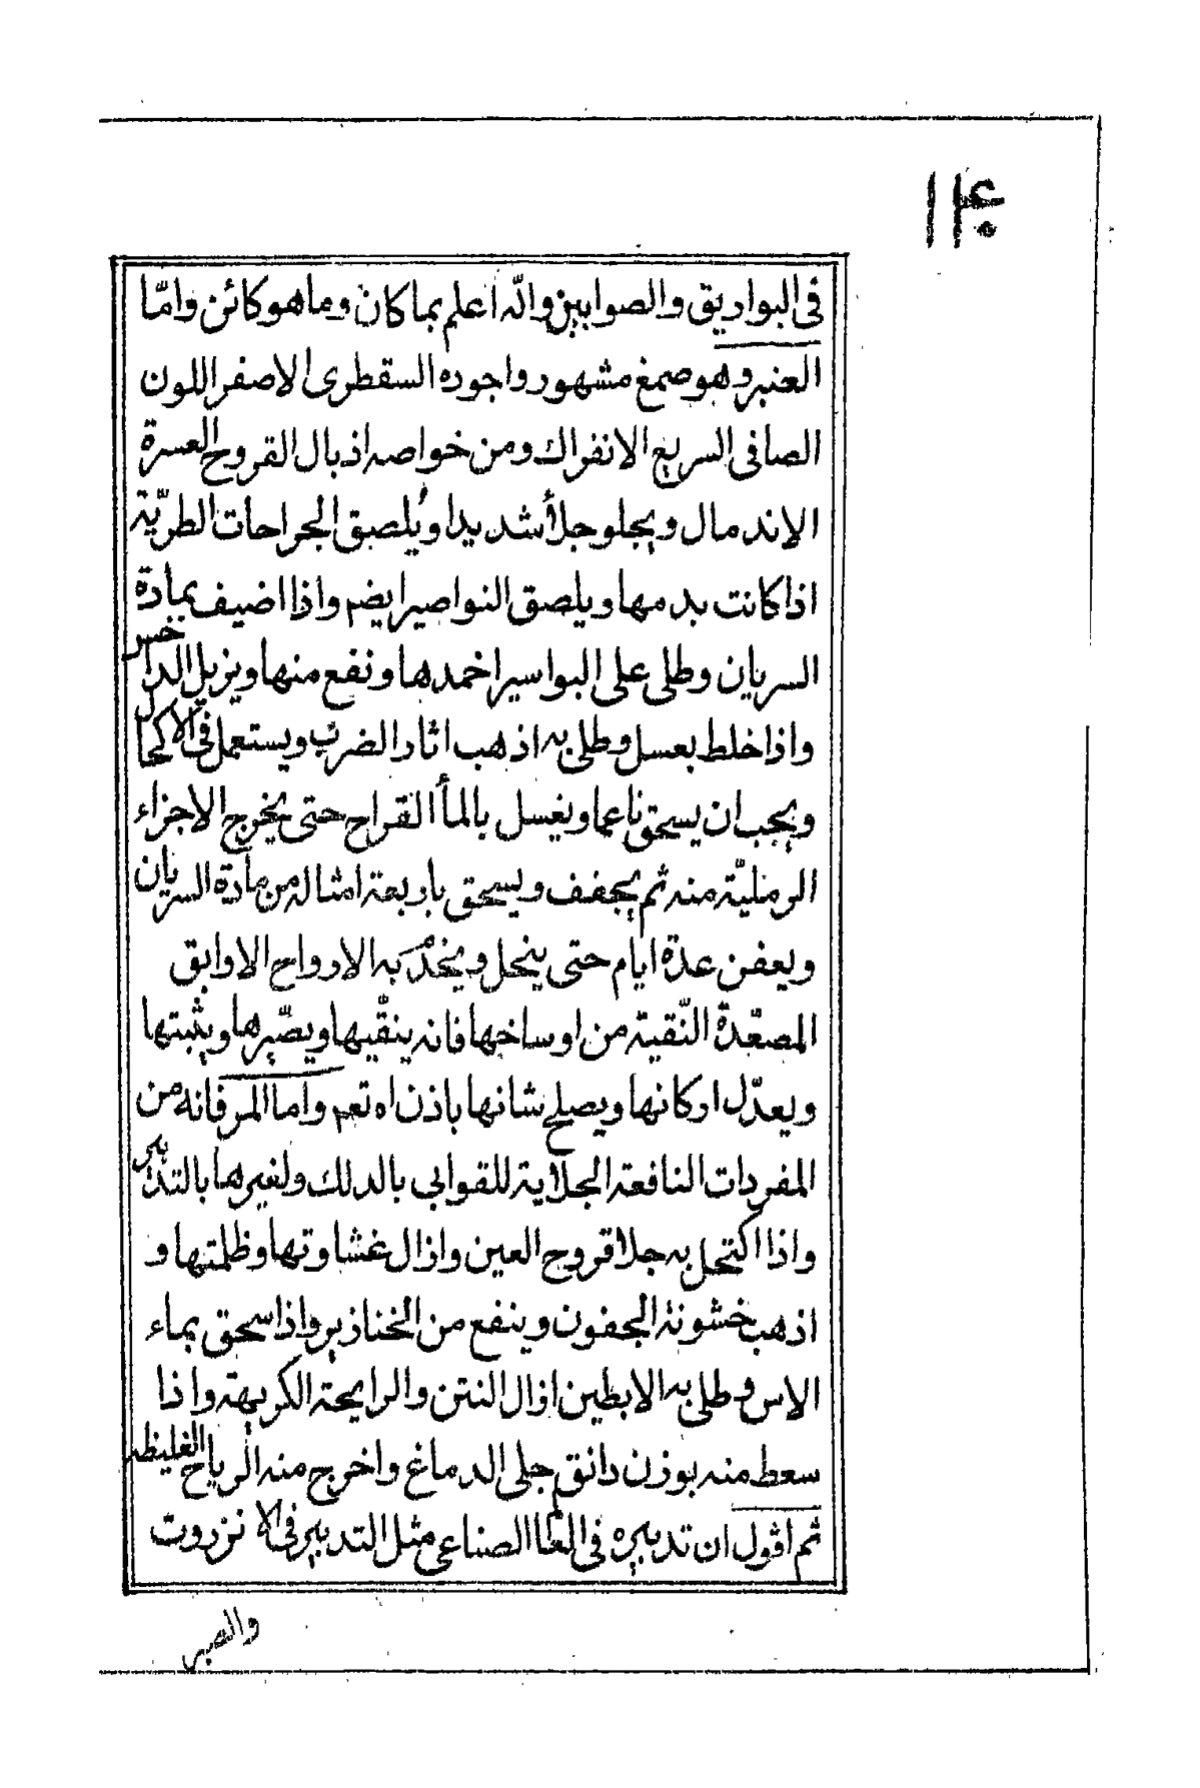 ١١٤
في البواريق والصوابين والله اعلم بما كان وما هو كائن وامّا
العنبر وهو صمغ مشهور واجوده السقطرى الاصفر اللون
الصافى السريع الانفراك ومن خواصه اذبال القروح العسرة
الاندمال ويجلو جلأ شديدا ويُلصق الجراحات الطريّة
اذا كانت بدمها ويلصق النواصير ايضم واذا اضيف بمادة
السريان وطلى على البواسير اخمدها ونفع منها ويزيل الداخس
واذا خلط بعسل وطلى به اذهب اثار الضرب ويستعمل في الاكحال
ويجب ان يسحق ناعما ويغسل بالمأ القراح حتى يخرج الاجزاء
الرمليّة منه ثم يجفف ويسحق باربعة امثاله من مادة السريان
ويعفن عدة ايام حتى ينحل ويخدم به الارواح الاوابق
المصعّدة النّقية من اوساخها فانه ينقّيها ويصّبرها ويثبتها
ويعدّل اركانها ويصلح شانها باذن اه تعم واما المر فانه من
المفردات النافعة الجلاية للقوابي بالدلك ولغيرها بالتدبير
واذا اكتحل به جلا قروح العين وازال غشاوتها وظلمتها و
اذهب خشونة الجفون وينفع من الخنازير واذا سحق بماء
الاس وطلى به الابطين ازال النتن والرايحة الكريهة واذا
سعط منه بوزن دانق جلى الدماغ واخرج منه الرياح الغليظه
ثم اقول ان تدبيره في العلم الصناعي مثل التدبير في الانزروت
والصبر